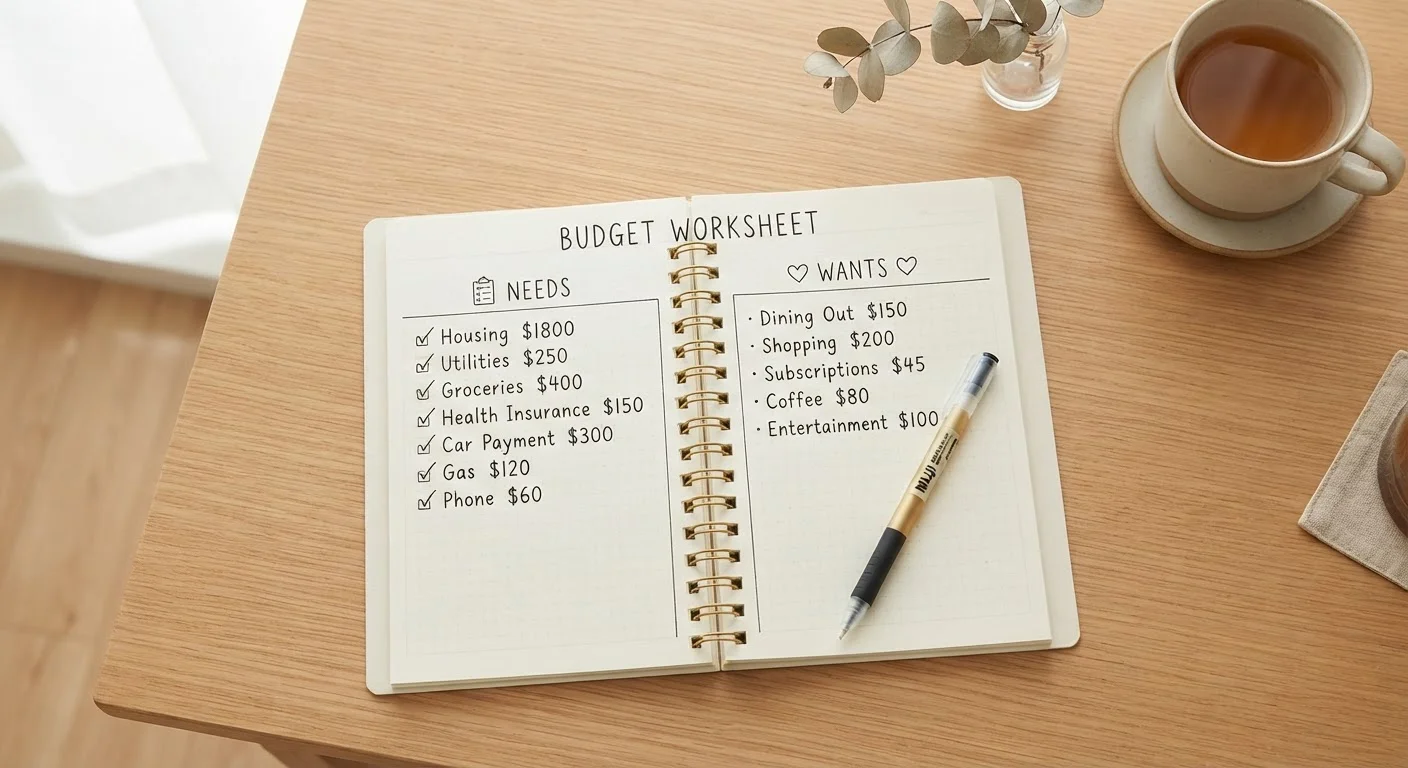 BUDGET WORKSHEET
NEEDS
☑ Housing $1800
☑ Utilities $250
☑ Groceries $400
☑ Health Insurance $150
☑ Car Payment $300
☑ Gas $120
☑ Phone $60
♡ WANTS ♡
· Dining Out $150
· Shopping $200
· Subscriptions $45
· Coffee $80
· Entertainment $100